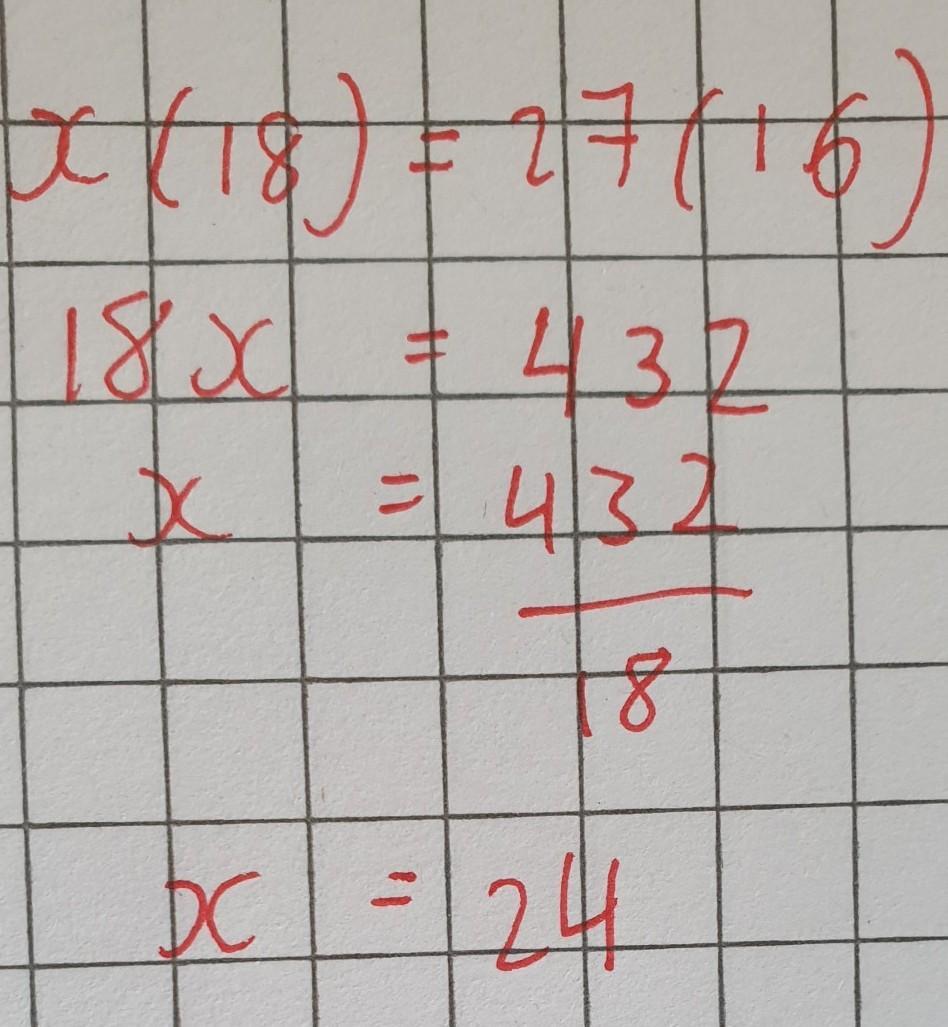 x(18) = 27(16)
18x = 432
x = 432
18
x = 24